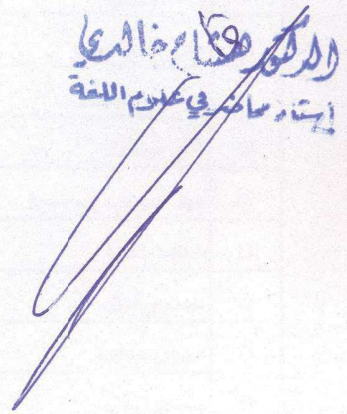 الدكتور هشام خالدي
أستاذ محاضر في علوم اللغة